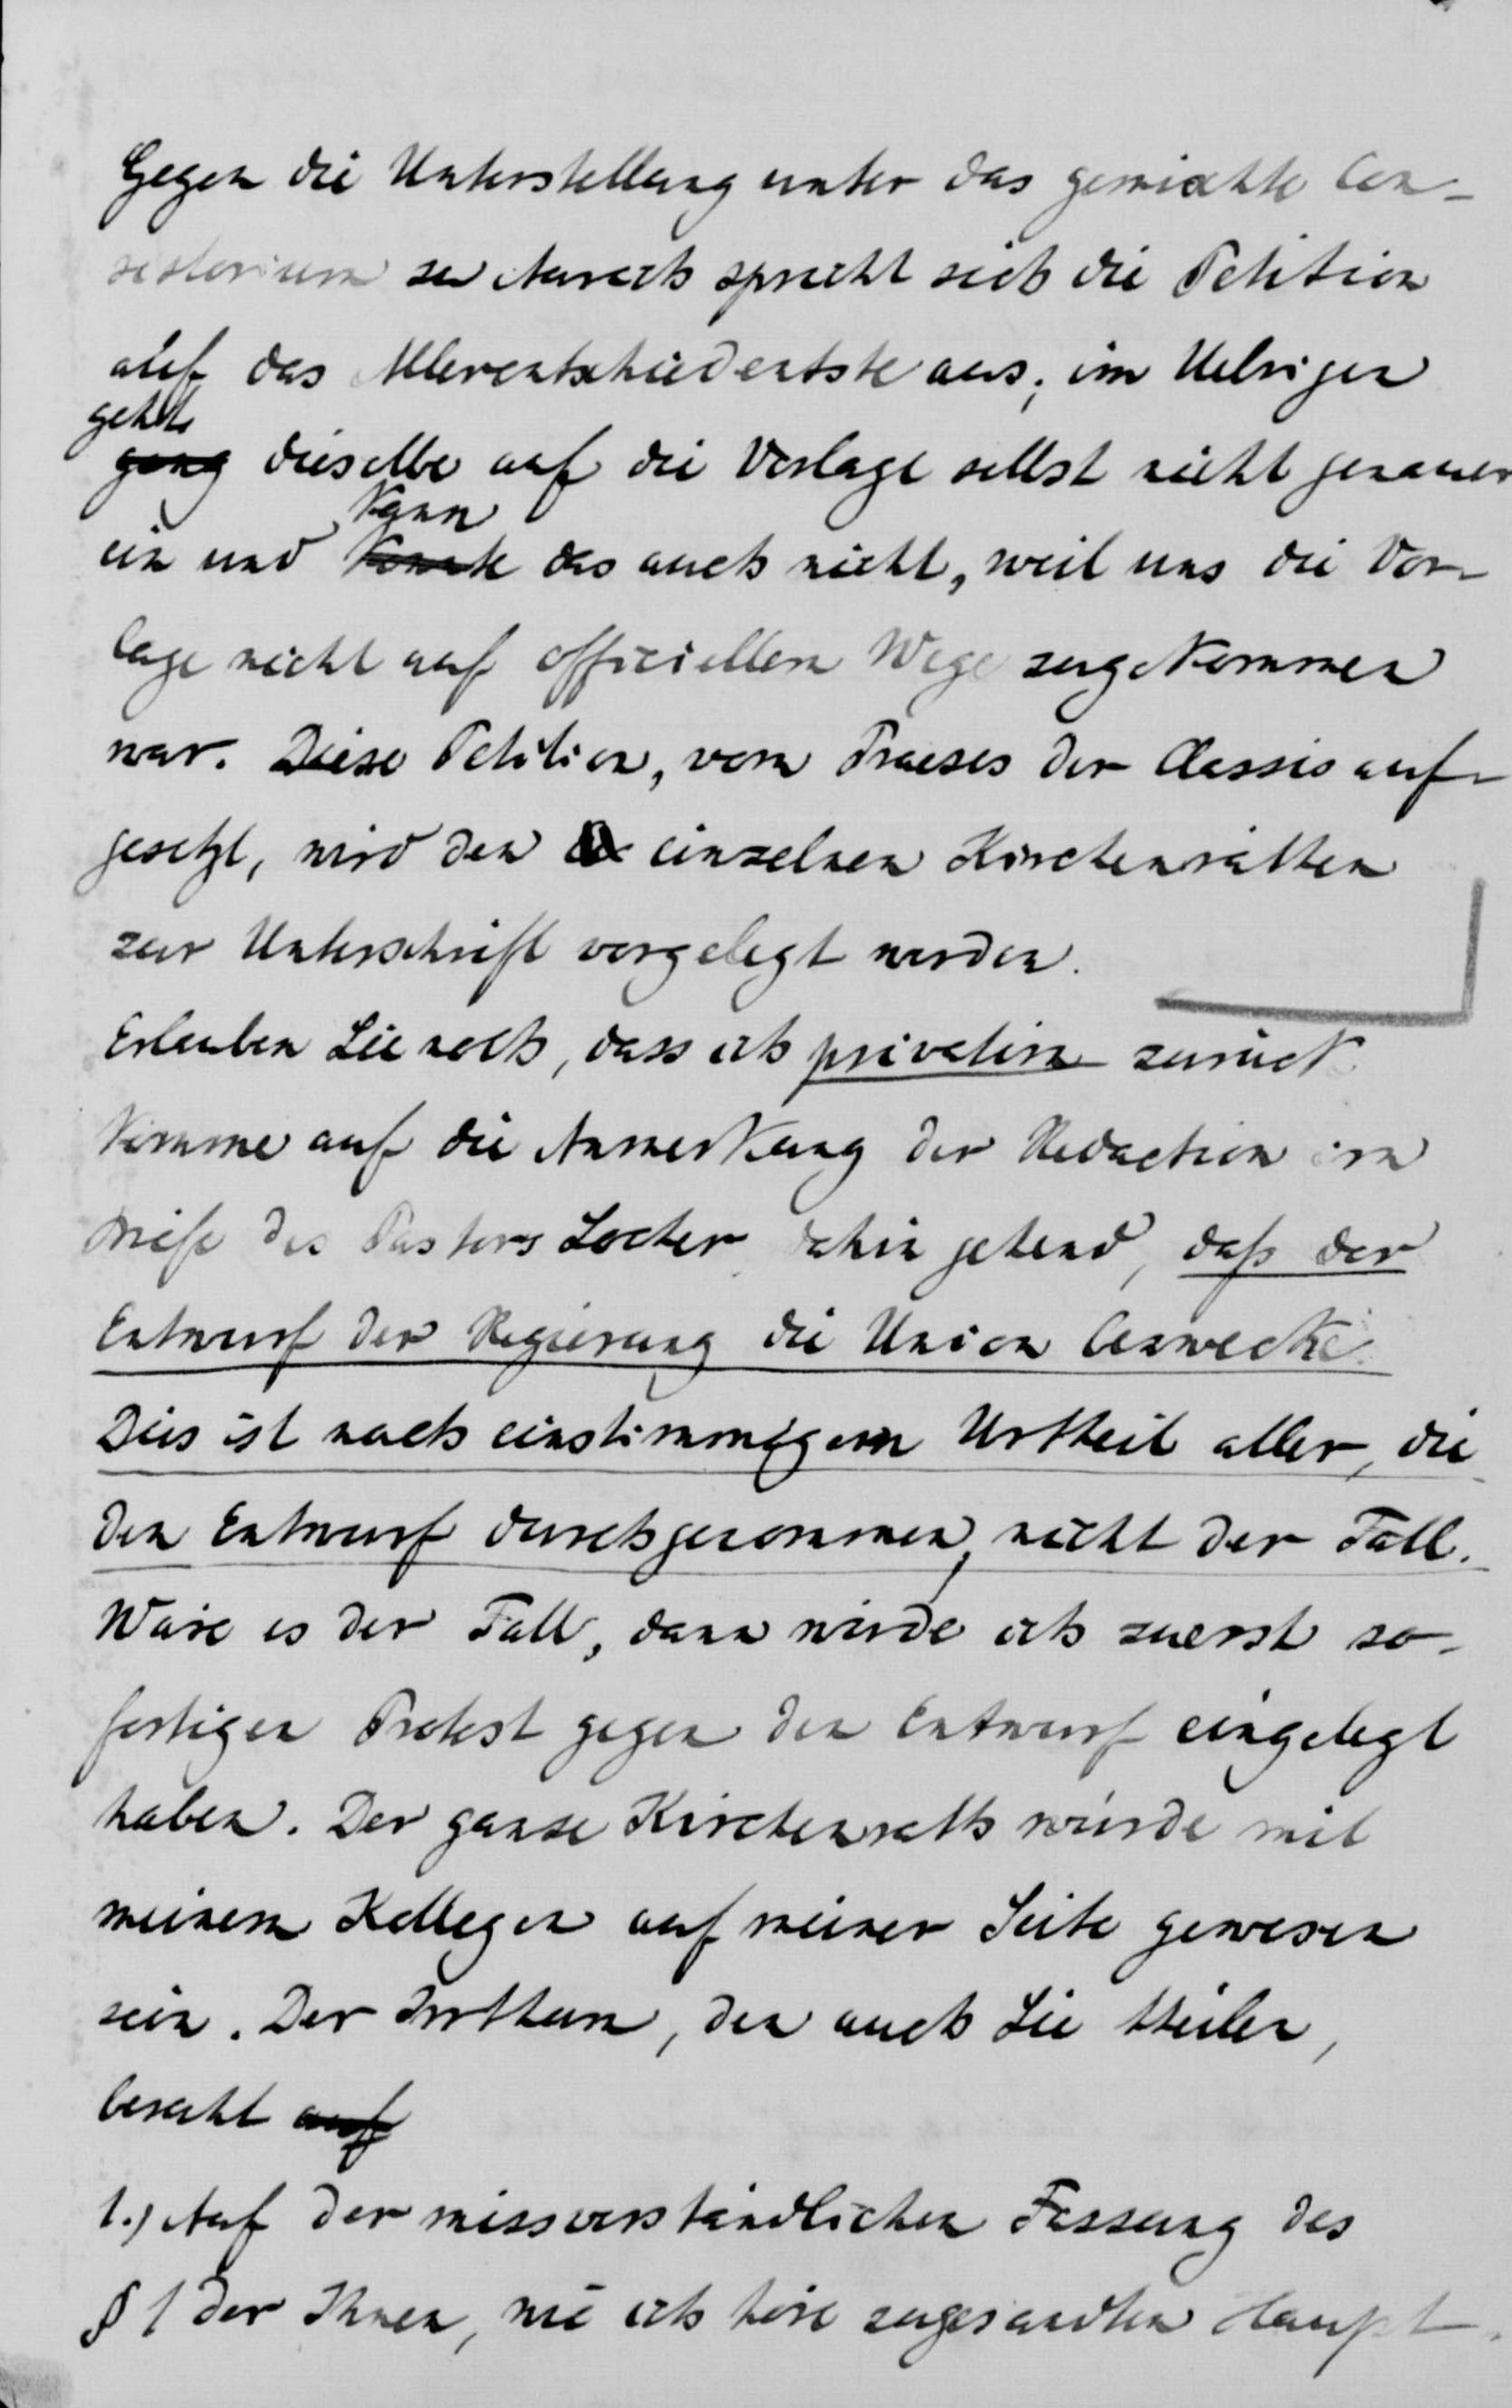 Gegen die Unterstellung unter das gemischte Con-
sistorium zu Aurich spricht sich die Petition
auf das Allerentschiedentste aus; im Uebrigen
geht
ging dieselbe auf die Vorlage selbst nicht genauer
kann
ein und konnte das auch nicht, weil uns die Vor-
lage nicht auf officiellem Wege zugekommen
war. Diese Petition, vom Praeses der Classis auf-
gesetzt, wird den einzelnen Kirchenräthen
zur Unterschrift vorgelegt werden.
Erlauben Sie noch, dass ich privatim zurück
komme auf die Anmerkung der Redaction im
Briefe des Pastors Locher dahin gehend, daß der
Entwurf der Regierung die Union bezwecke.
Dies ist nach einstimmigem Urtheil aller, die
den Entwurf durchgenommen, nicht der Fall.
Wäre es der Fall, dann würde ich zuerst so-
fortigen Protest gegen den Entwurf eingelegt
haben. Der ganze Kirchenrath würde mit
meinem Kollegen auf meiner Seite gewesen
sein. Der Irrthum, den auch Sie theilen,
beruht auf
1.) Auf der missverständlichen Fassung des
§ 1 der Ihnen, wie ich höre zugesandten Haupt-